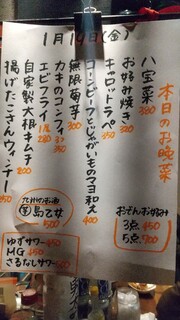 1月14日(金)
本日のお晩菜
八宝菜 380
お好み焼き 320
キャロットラペ 350
コーンビーフとじゃがいものマヨ和え 400
無限菊芋 300
カキのコンフィ 3ケ 350
エビフライ 1尾 280
自家製大根キムチ 200
揚げたこさんウィンナー 350
おぞんお好み
3点 450
5点 700
九州のお酒
国島乙女 500
ゆずサワー 450
MG 450
さるなしサワー 600